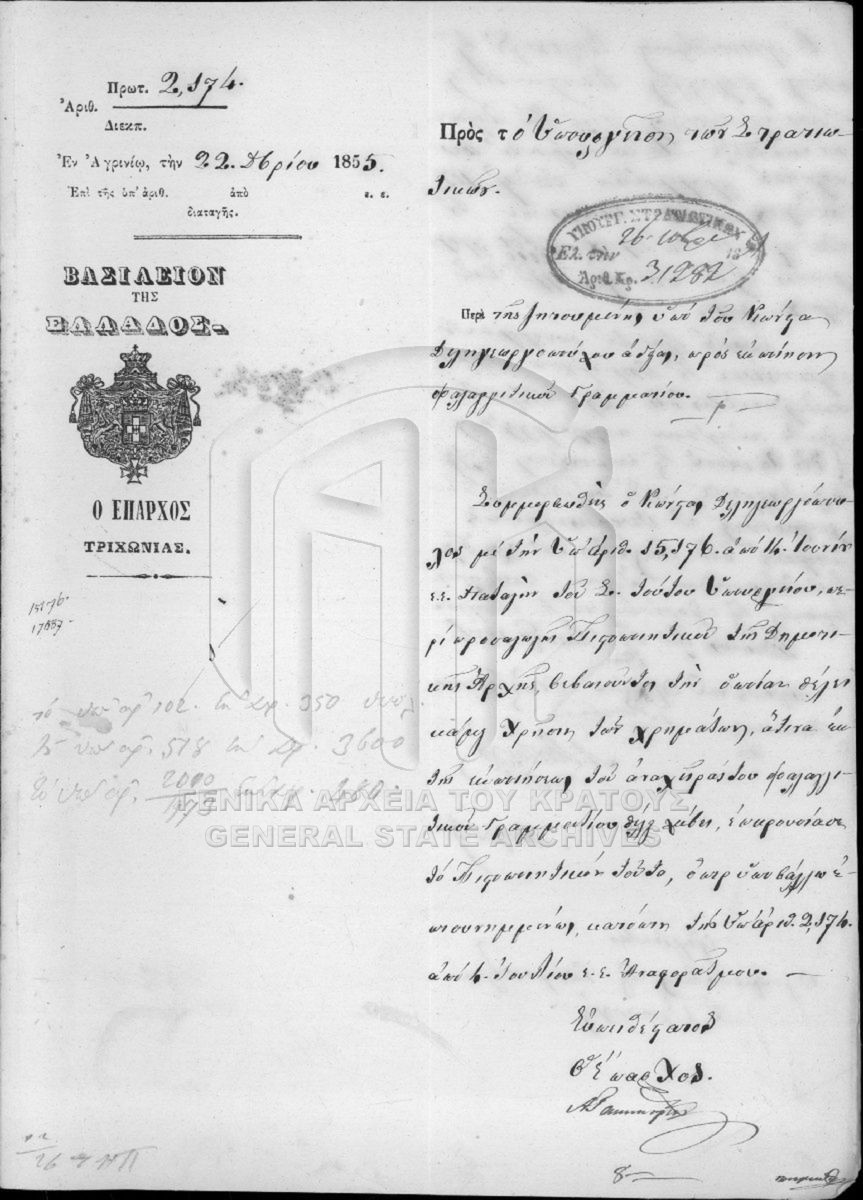 Πρωτ. 2,174.
Ἀριθ.
Διεκπ.
Ἐν Ἀγρινίῳ, τὴν 22. 8βρίου 1855.
Ἐπὶ τῆς ὑπ' ἀριθ. ἀπὸ ε. ε.
διαταγῆς.
ΒΑΣΙΛΕΙΟΝ
ΤΗΣ
ΕΛΛΑΔΟΣ.
Ο ΕΠΑΡΧΟΣ
ΤΡΙΧΩΝΙΑΣ.
Πρὸς τὸ Ὑπουργεῖον τῶν Στρατιω-
τικῶν.
ΥΠΟΥΡΓ. ΣΤΡΑΤΙΩΤΙΚΩΝ
Ἐλ. τὴν 26
Ἀριθ. Πρ. 31282
Περὶ τῆς ζητουμένης ὑπὸ τοῦ Κώστα
Δεληγεωργοπούλου ἀδείας, πρὸς ἐκποίησιν
φαλαγγιτικοῦ Γραμματίου.
Συμμορφωθεὶς ὁ Κώστας Δεληγεωργόπου-
λος μὲ τὴν Ὑπ' ἀριθ. 15,176. ἀπὸ 14. Ἰουνίου
ε.ε. διαταγὴν τοῦ Σ. τούτου Ὑπουργείου, πε-
ρὶ προσαγωγῆς Πιστοποιητικοῦ τῆς Δημοτι-
κῆς Ἀρχῆς, βεβαιοῦντος τὴν ὁποίαν θέλει
κάμει χρῆσιν τῶν χρημάτων, ἅτινα ἐκ
τῆς ἐκποιήσεως τοῦ ἀνὰ χεῖράς του φαλαγγι-
τικοῦ Γραμματίου θέλει λάβει, ἐπαρουσίασε
τὸ Πιστοποιητικὸν τοῦτο, ὅπερ ὑποβάλλω ἐ-
πισυνημμένως, κατόπιν τῆς Ὑπ' ἀριθ. 2,174.
ἀπὸ 4. Ἰουλίου ε.ε. ἀναφορᾶς μου.
Εὐπειθέστατος
Ὁ Ἔπαρχος.
15176
το υπ' αρ. 102 350
υπ' αρ. 518 3600
υπ' αρ. 2000
ΓΕΝΙΚΑ ΑΡΧΕΙΑ ΤΟΥ ΚΡΑΤΟΥΣ
GENERAL STATE ARCHIVES